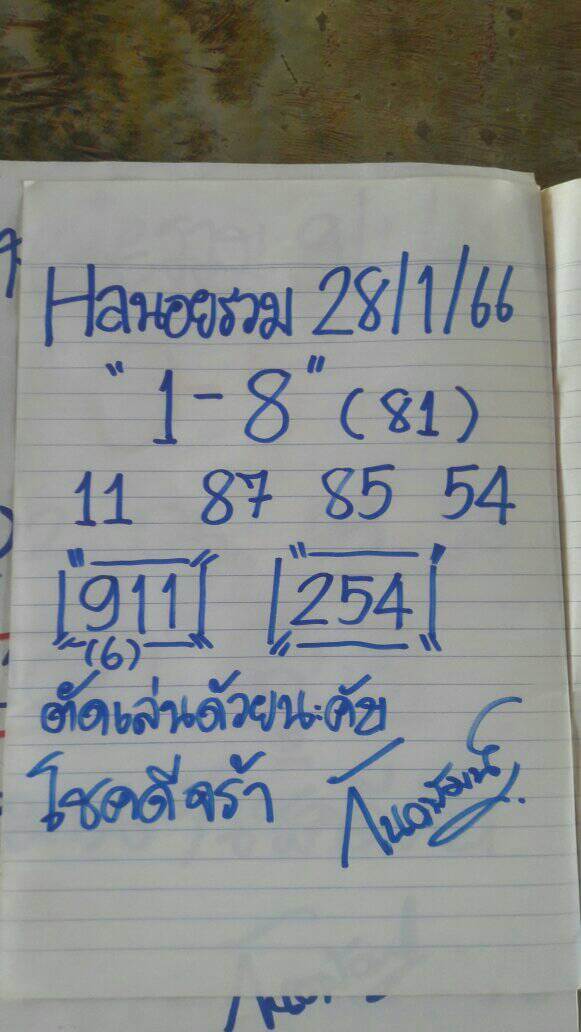 Hลานอยรวม 28/1/66
" 1-8 " (81)
11 87 85 54
911 254
(6)
ตัดเล่นด้วยนะคับ
โชคดีจร้า